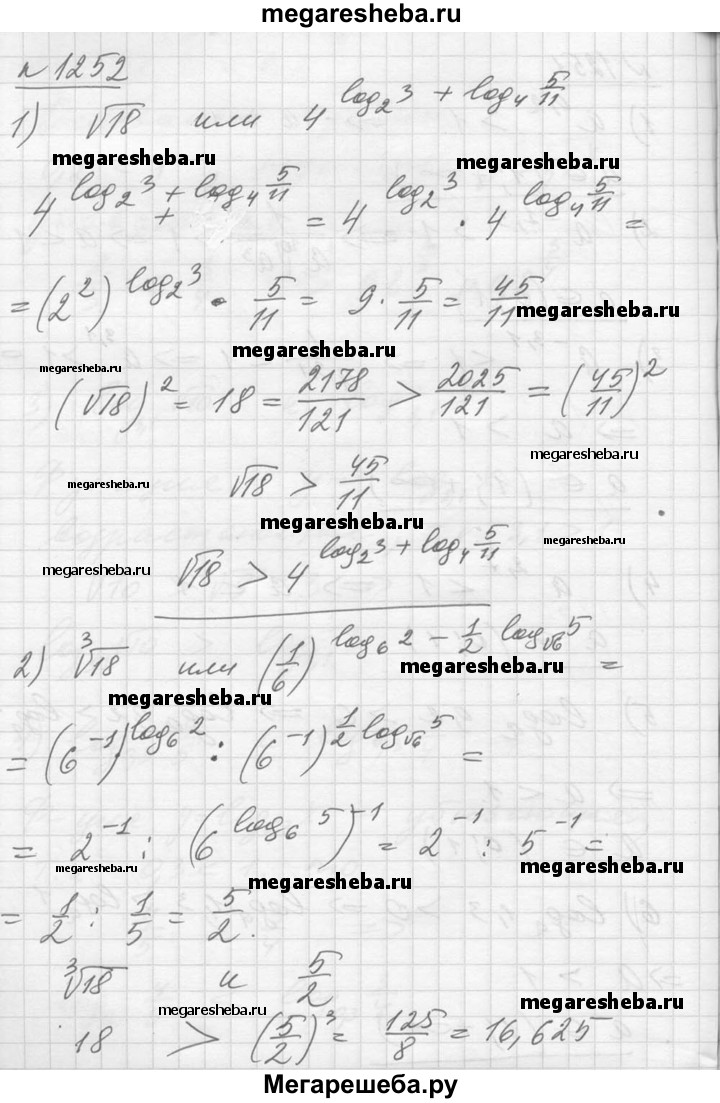 megaresheba.ru
n 1252
1) √18 или 4^(log₂3 + log₄ 5/11)
megaresheba.ru megaresheba.ru
4^(log₂3 + log₄ 5/11) = 4^(log₂3) · 4^(log₄ 5/11) =
= (2²)^(log₂3) · 5/11 = 9 · 5/11 = 45/11
megaresheba.ru
megaresheba.ru
megaresheba.ru
(√18)² = 18 = 2178/121 > 2025/121 = (45/11)²
megaresheba.ru
√18 > 45/11
megaresheba.ru
megaresheba.ru
√18 > 4^(log₂3 + log₄ 5/11)
megaresheba.ru
megaresheba.ru
2) ³√18 или (1/6)^(log₆2 − 1/2 log_√6 5) =
megaresheba.ru
megaresheba.ru
= (6⁻¹)^(log₆2) : (6⁻¹)^(1/2 log_√6 5) =
megaresheba.ru
= 2⁻¹ : (6^(log₆5))⁻¹ = 2⁻¹ : 5⁻¹ =
megaresheba.ru megaresheba.ru
megaresheba.ru
= 1/2 : 1/5 = 5/2.
³√18 и 5/2
megaresheba.ru megaresheba.ru
18 > (5/2)³ = 125/8 = 16,625
Мегарешеба.ру